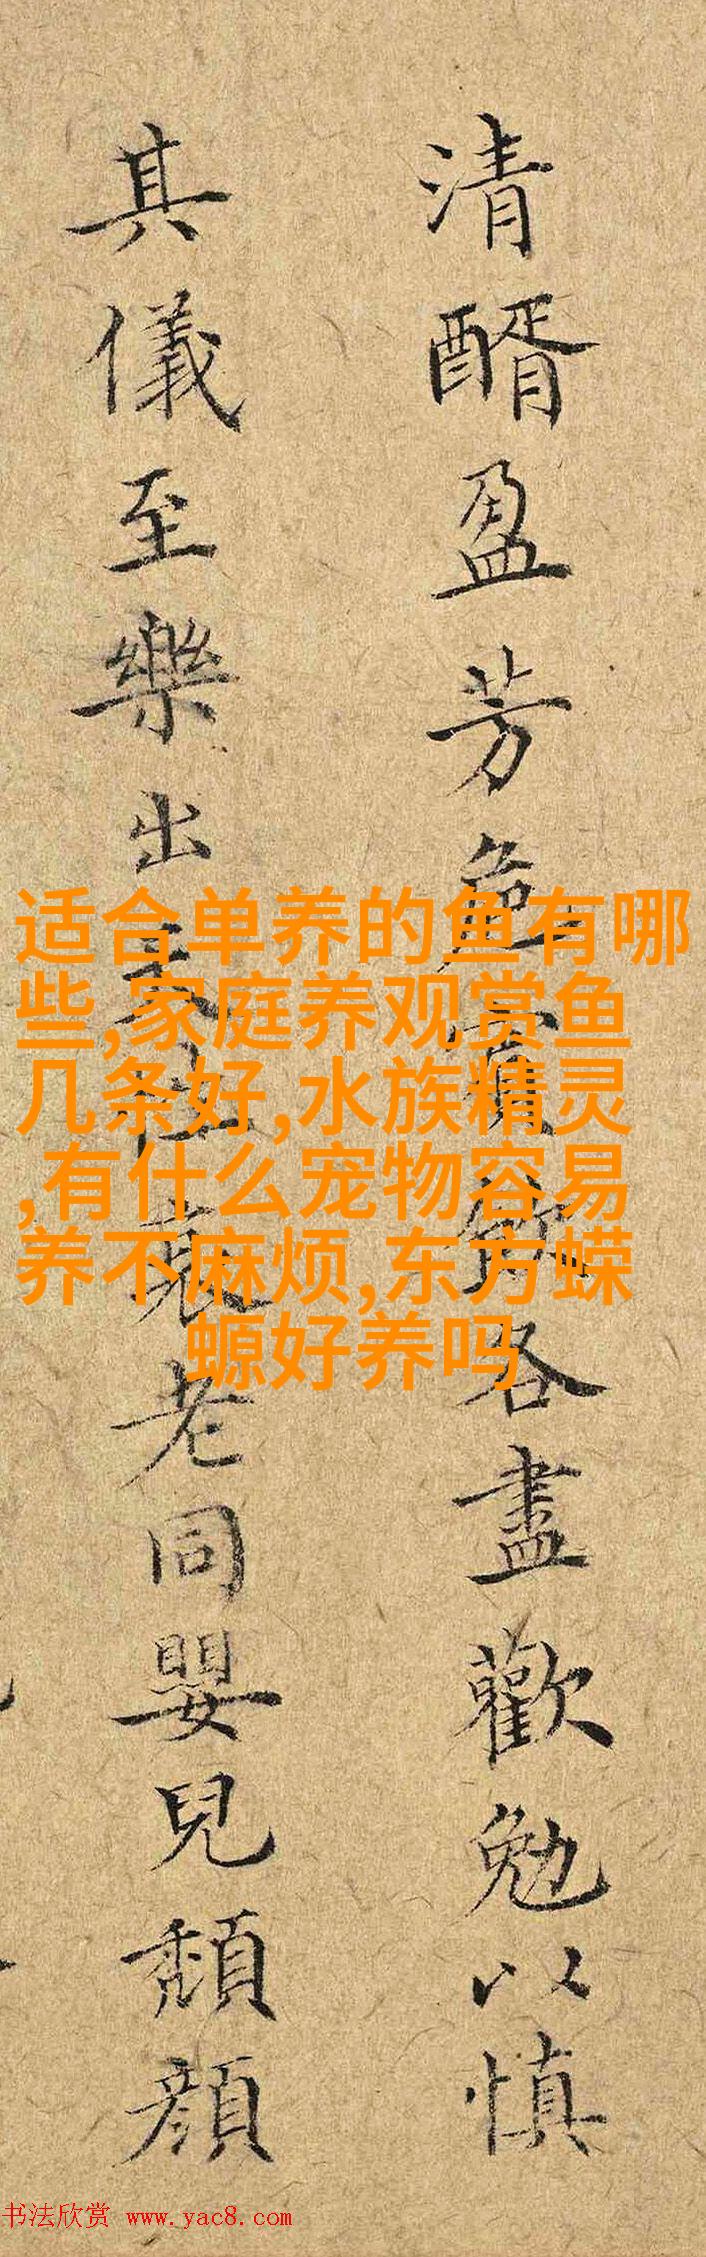 清醑盈芳
各盡歡勉以慎
其儀至樂出
衰老同嬰兒頹顏
适合单养的鱼有哪
些,家庭养观赏鱼
几条好,水族精灵
,有什么宠物容易
养不麻烦,东方蝾
螈好养吗
书法欣赏 www.yac8.com